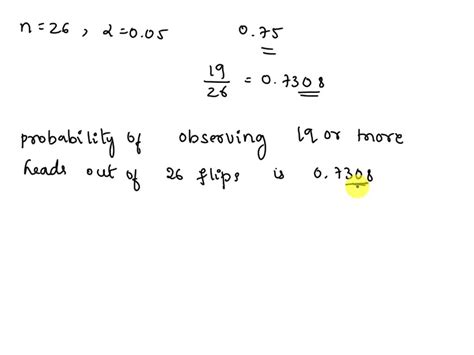 n=26, α=0.05 0.75
19/26 = 0.7308
probability of observing 19 or more
heads out of 26 flips is 0.7308